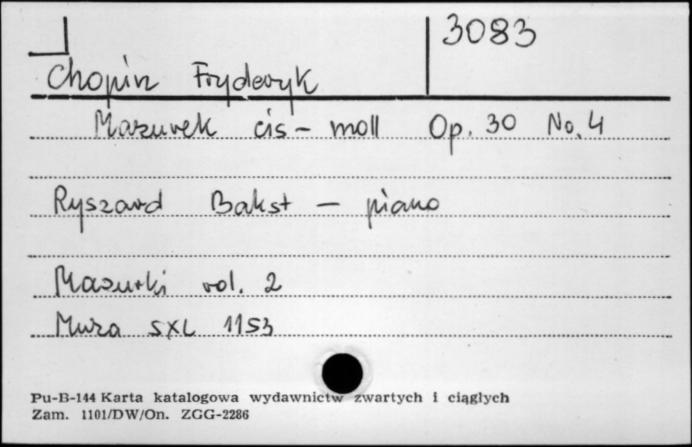 3083
Chopin Fryderyk
Mazurek cis - moll Op. 30 No. 4
Ryszard Bakst - piano
Mazurki vol. 2
Muza SXL 1153
Pu-B-144 Karta katalogowa wydawnictw zwartych i ciągłych
Zam. 1101/DW/On. ZGG-2286